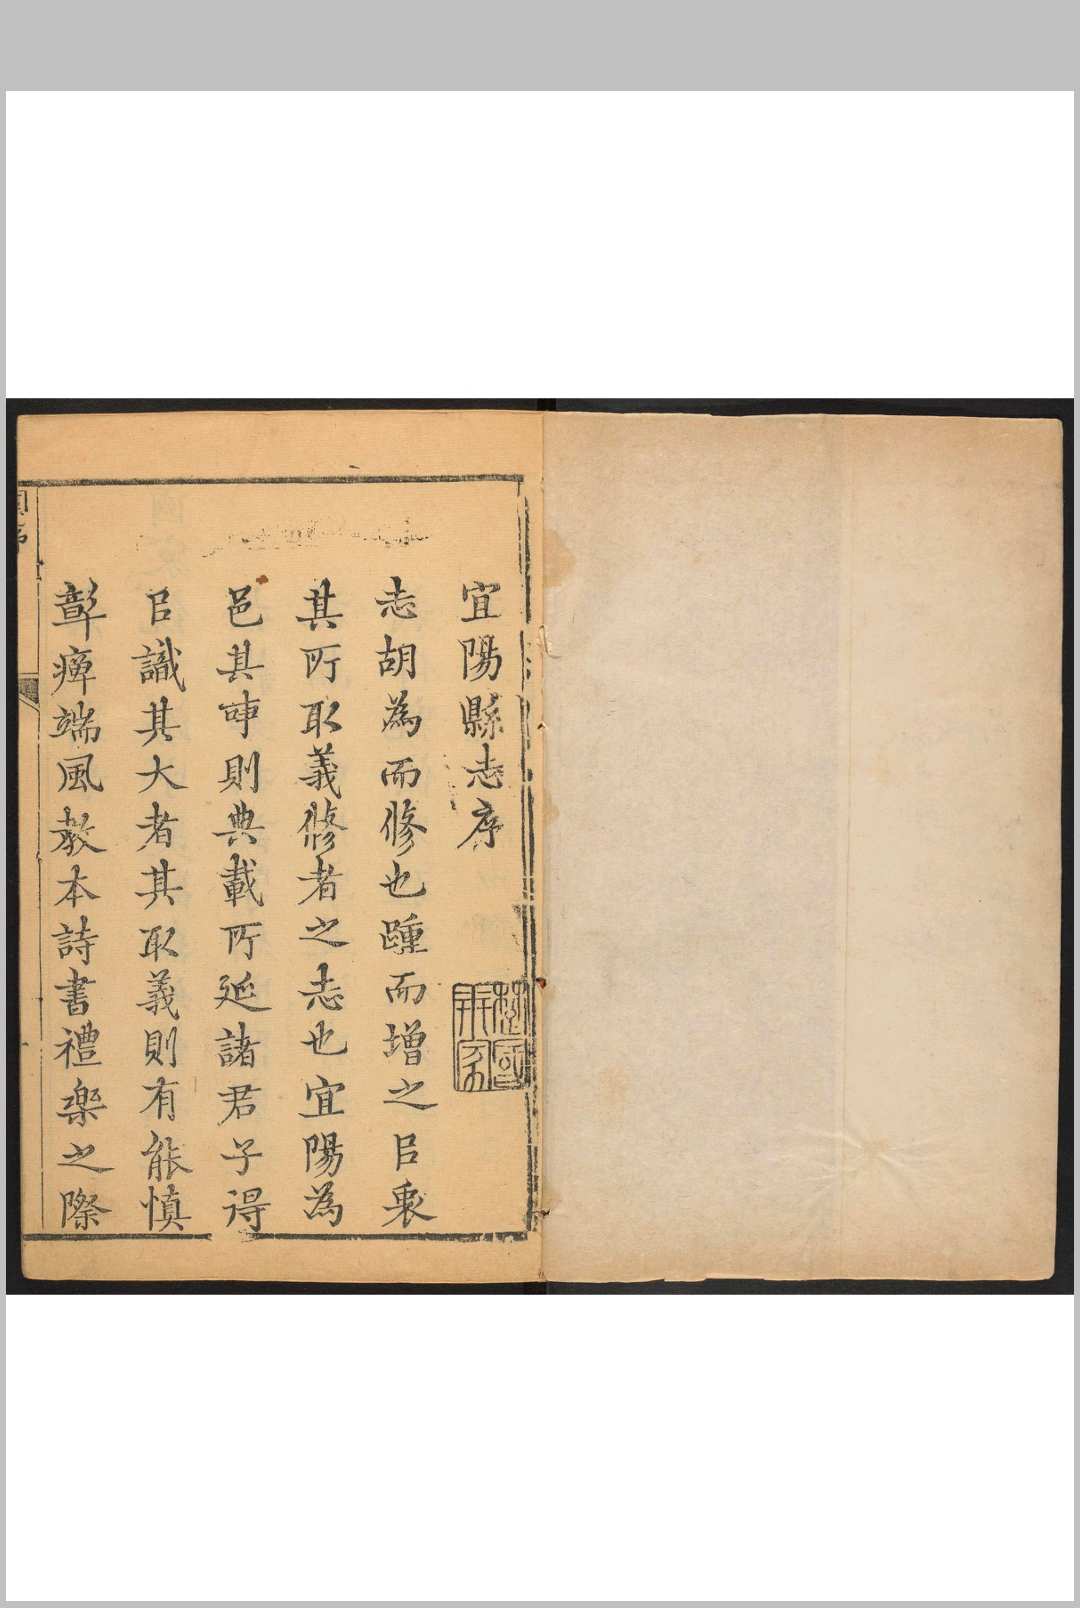 宜陽縣志序
志胡為而修也踵而增之㠯衷
其所取義修者之志也宜陽為
邑其事則典載所延諸君子得
㠯識其大者其取義則有能慎
彰癉端風教本詩書禮樂之際